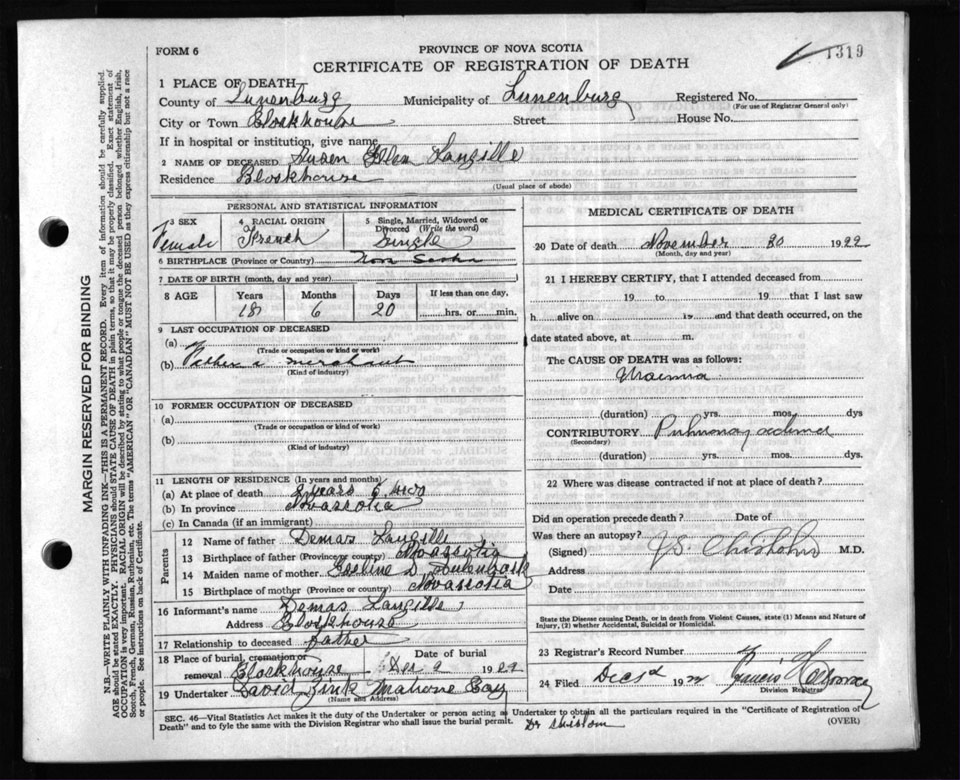 FORM 6
PROVINCE OF NOVA SCOTIA
CERTIFICATE OF REGISTRATION OF DEATH
1319
1 PLACE OF DEATH
County of Lunenburg Municipality of Lunenburg Registered No.
(For use of Registrar General only)
City or Town Blockhouse Street House No.
If in hospital or institution, give name
2 NAME OF DECEASED Susan Ellen Langille
Residence Blockhouse
(Usual place of abode)
PERSONAL AND STATISTICAL INFORMATION
3 SEX Female
4 RACIAL ORIGIN French
5 Single, Married, Widowed or Divorced (Write the word) Single
6 BIRTHPLACE (Province or Country) Nova Scotia
7 DATE OF BIRTH (month, day and year)
8 AGE Years Months Days If less than one day,
18 6 20 hrs. or min.
9 LAST OCCUPATION OF DECEASED
(a)
(Trade or occupation or kind or work)
(b) Father a merchant
(Kind of industry)
10 FORMER OCCUPATION OF DECEASED
(a)
(Trade or occupation or kind or work)
(b)
(Kind of industry)
11 LENGTH OF RESIDENCE (In years and months)
(a) At place of death years 6
(b) In province Novascotia
(c) In Canada (if an immigrant)
Parents
12 Name of father Demas Langille
13 Birthplace of father (Province or country) Novascotia
14 Maiden name of mother D
15 Birthplace of mother (Province or country) Novascotia
16 Informant's name Demas Langille
Address Blockhouse
17 Relationship to deceased father
18 Place of burial, cremation or removal Blockhouse
Date of burial Dec 2 1922
19 Undertaker David Zink Mahone Bay
(Name and Address)
MEDICAL CERTIFICATE OF DEATH
20 Date of death November 30 1922
(Month, day and year)
21 I HEREBY CERTIFY, that I attended deceased from
19 to 19 that I last saw
h alive on 19 and that death occurred, on the
date stated above, at m.
The CAUSE OF DEATH was as follows:
Uraemia
(duration) yrs. mos. dys
CONTRIBUTORY Pulmonary oedema
(Secondary)
(duration) yrs. mos. dys.
22 Where was disease contracted if not at place of death?
Did an operation precede death? Date of
Was there an autopsy?
(Signed) J.S. Chisholm M.D.
Address
Date
State the Disease causing Death, or in death from Violent Causes, state (1) Means and Nature of Injury, (2) whether Accidental, Suicidal or Homicidal.
23 Registrar's Record Number
24 Filed Dec 1922 Francis
Division Registrar
SEC. 46—Vital Statistics Act makes it the duty of the Undertaker or person acting as Undertaker to obtain all the particulars required in the "Certificate of Registration of
Death" and to fyle the same with the Division Registrar who shall issue the burial permit.
(OVER)
MARGIN RESERVED FOR BINDING
N.B.—WRITE PLAINLY WITH UNFADING INK—THIS IS A PERMANENT RECORD. Every item of information should be carefully supplied.
AGE should be stated EXACTLY. PHYSICIANS should STATE CAUSE OF DEATH in plain terms, so that it may be properly classified. Exact statement of
OCCUPATION is very important. RACIAL ORIGIN will be described by stating to what people or tongue the deceased person belonged whether English, Irish,
Scotch, French, German, Russian, Ruthenian, etc. The terms "AMERICAN" OR "CANADIAN" MUST NOT BE USED as they express citizenship but not a race
or people. See instructions on back of Certificate.